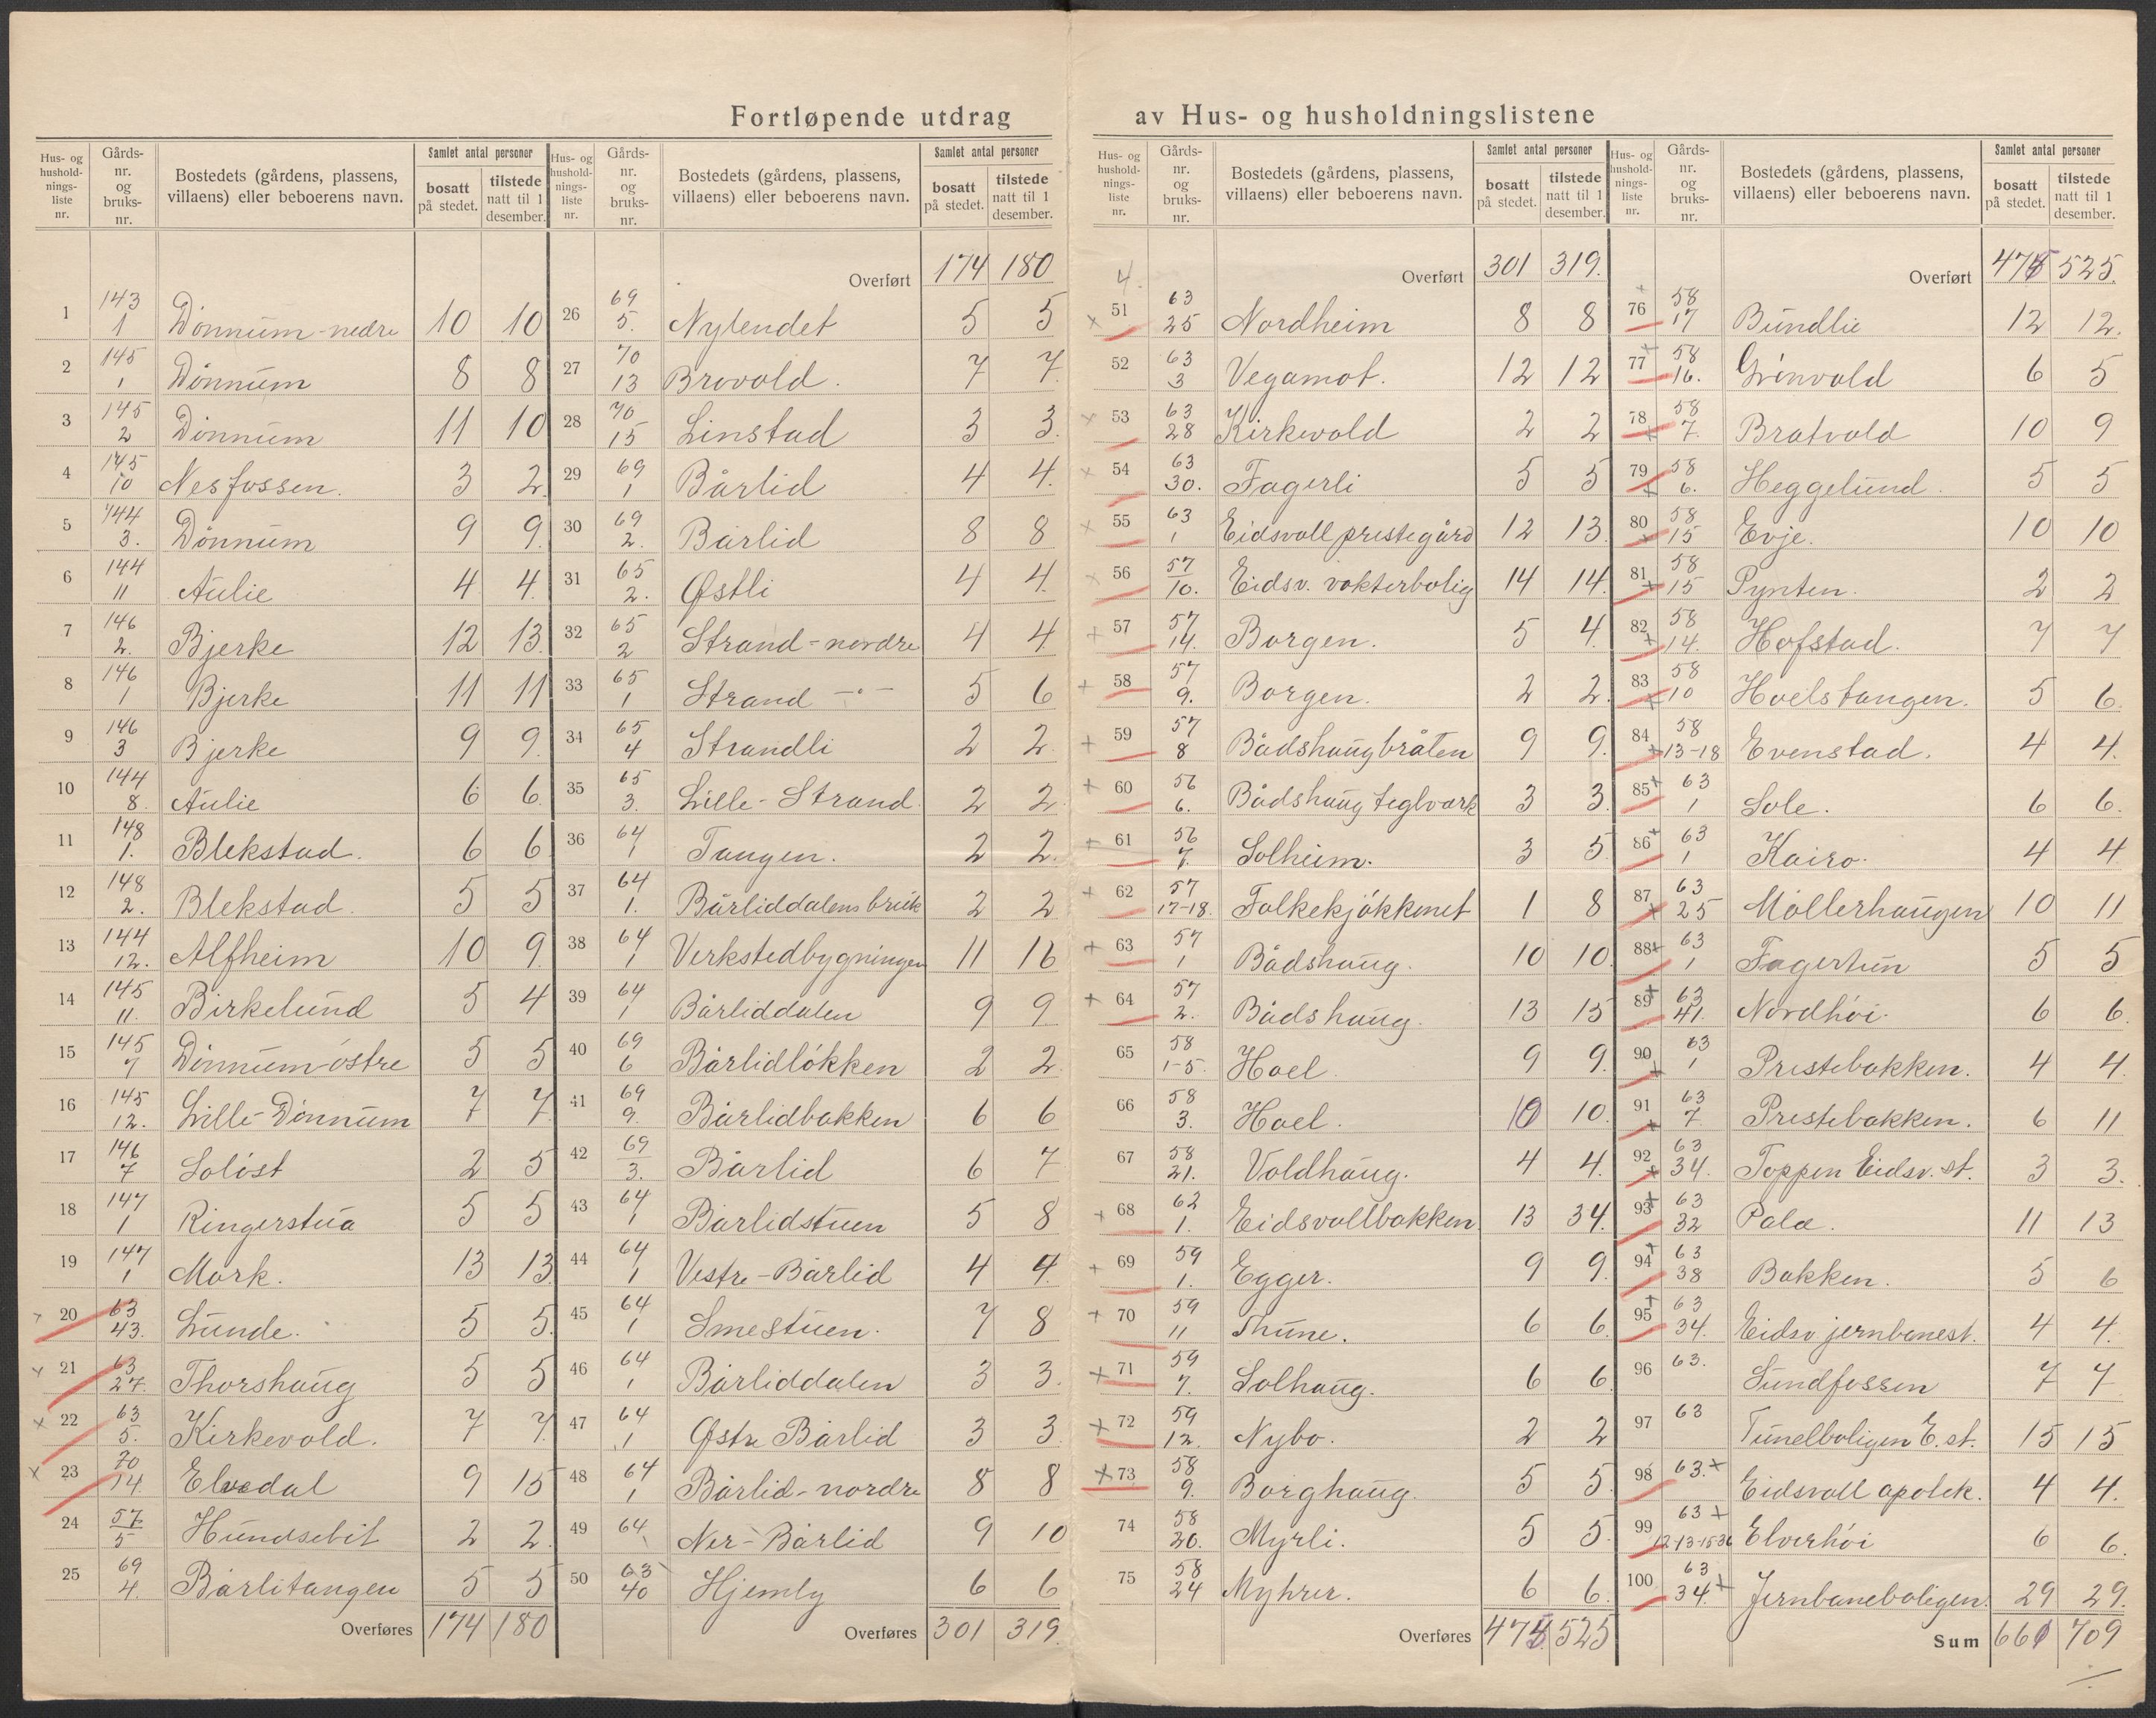 Fortløpende utdrag av Hus- og husholdningslistene
Hus- og husholdnings-liste nr. | Gårds-nr. og bruks-nr. | Bostedets (gårdens, plassens, villaens) eller beboerens navn. | Samlet antal personer | bosatt på stedet. | tilstede natt til 1 desember.
1 143 1 Dönnum-nedre 10 10
2 145 1 Dönnum 8 8
3 145 2 Dönnum 11 10
4 145 10 Nesfossen. 3 2
5 144 3. Dönnum 9 9.
6 144 11 Aulie 4 4.
7 146 2. Bjerke 12 13.
8 146 1 Bjerke 11 11
9 146 3 Bjerke 9 9.
10 144 8. Aulie 6 6.
11 148 1. Blekstad. 6 6
12 148 2. Blekstad. 5 5
13 144 12. Alfheim 10 9.
14 145 11. Birkelund 5 4
15 145 7 Dönnum-östre 5 5
16 145 12. Lille-Dönnum 7 7
17 146 7 Solöst 2 5
18 147 1 Ringerstua 5 5
19 147 1 Mork. 13 13
20 63 43. Lunde. 5 5.
21 63 27. Thorshaug 5 5
22 63 5. Kirkevold. 7 7.
23 70 14. Elvedal 9 15
24 57 5 Hundsebit 2 2.
25 69 4. Bårlitangen 5 5
Overføres 174 180
Hus- og husholdnings-liste nr. | Gårds-nr. og bruks-nr. | Bostedets (gårdens, plassens, villaens) eller beboerens navn. | Samlet antal personer | bosatt på stedet. | tilstede natt til 1 desember.
Overført 174 180
26 69 5. Nylendet 5 5
27 70 13 Brovold. 7 7.
28 70 15 Linstad 3 3.
29 69 1 Bårlid 4 4.
30 69 2. Bårlid 8 8
31 65 2. Østli 4 4.
32 65 2 Strand-nordre 4 4.
33 65 1 Strand -"- 5 6
34 65 4 Strandli 2 2.
35 65 3. Lille-Strand. 2 2.
36 64 1 Tangen. 2 2.
37 64 1. Bårliddalens bruk 2 2
38 64 1 Verkstedbygningen 11 16
39 64 1 Bårliddalen 9 9.
40 69 6 Bårlidlökken 2 2.
41 69 9. Bårlidbakken 6 6
42 69 3. Bårlid 6 7
43 64 1 Bårlidstuen 5 8
44 64 1 Vestre-Bårlid 4 4.
45 64 1 Smestuen. 7 8
46 64 1 Bårliddalen 3 3.
47 64 1 Østre Bårlid 3 3.
48 64 1 Bårlid-nordre 8 8
49 64 Ner-Bårlid 9 10
50 63 40 Hjemly 6 6
Overføres 301 319.
Hus- og husholdnings-liste nr. | Gårds-nr. og bruks-nr. | Bostedets (gårdens, plassens, villaens) eller beboerens navn. | Samlet antal personer | bosatt på stedet. | tilstede natt til 1 desember.
4. Overført 301 319.
51 63 25 Nordheim 8 8
52 63 3 Vegamot. 12 12
53 63 28 Kirkevold 2 2
54 63 30. Fagerli 5 5
55 63 1 Eidsvoll prestegård 12 13.
56 57 10. Eidsv. vokterbolig 14 14.
57 57 14. Borgen. 5 4.
58 57 9. Borgen. 2 2.
59 57 8 Bådshaugbråten 9 9.
60 56 6. Bådshaug teglverk 3 3.
61 56 7. Solheim. 3 5
62 57 17-18. Folkekjökkenet 1 8
63 57 1 Bådshaug. 10 10
64 57 2. Bådshaug. 13 15
65 58 1-5. Hoel 9 9.
66 58 3. Hoel. 10 10.
67 58 21. Voldhaug. 4 4.
68 62 1. Eidsvollbakken. 13 34.
69 59 1. Egger. 9 9.
70 59 11 Thune. 6 6.
71 59 7. Solhaug. 6 6
72 59 12. Nybo. 2 2
73 58 9. Borghaug. 5 5.
74 58 20. Myrli. 5 5.
75 58 24 Myhrer. 6 6.
Overføres 475 525
Hus- og husholdnings-liste nr. | Gårds-nr. og bruks-nr. | Bostedets (gårdens, plassens, villaens) eller beboerens navn. | Samlet antal personer | bosatt på stedet. | tilstede natt til 1 desember.
Overført 475 525.
76 58 17 Bundlie 12 12.
77 58 16. Grönvold 6 5
78 58 7. Bratvold 10 9
79 58 6. Heggelund. 5 5
80 58 15 Evje. 10 10
81 58 15 Pynten. 2 2
82 58 14. Hofstad. 7 7
83 58 10 Hoelstangen. 5 6.
84 58 13-18 Evenstad. 4 4.
85 63 1 Sole. 6 6.
86 63 1 Kairo. 4 4
87 63 25 Möllerhaugen 10 11
88 63 1 Fagertun 5 5
89 63 41. Nordhöi. 6 6.
90 63 1 Prestebakken. 4 4.
91 63 7 Prestebakken. 6 11
92 63 34. Toppen Eidsv. st. 3 3.
93 63 32 Pålæ. 11 13
94 63 38 Bakken. 5 6
95 63 34. Eidsv jernbanest. 4 4.
96 63. Sundfossen 7 7
97 63 Tunelboligen E. st. 15 15
98 63. Eidsvoll apotek. 4 4.
99 63 12-13-15-36 Elverhöi 6 6.
100 63 34 Jernbaneboligen. 29 29.
Sum 661 709